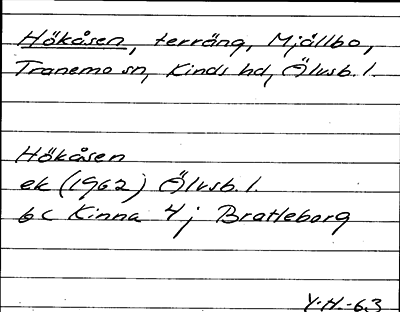 Hökåsen, terräng, Mjöllbo,
Tranemo sn, Kinds hd, Älvsb. l.
Hökåsen
ek (1962) Älvsb. l.
6c Kinna 4j Bratteborg
Y.H.-63